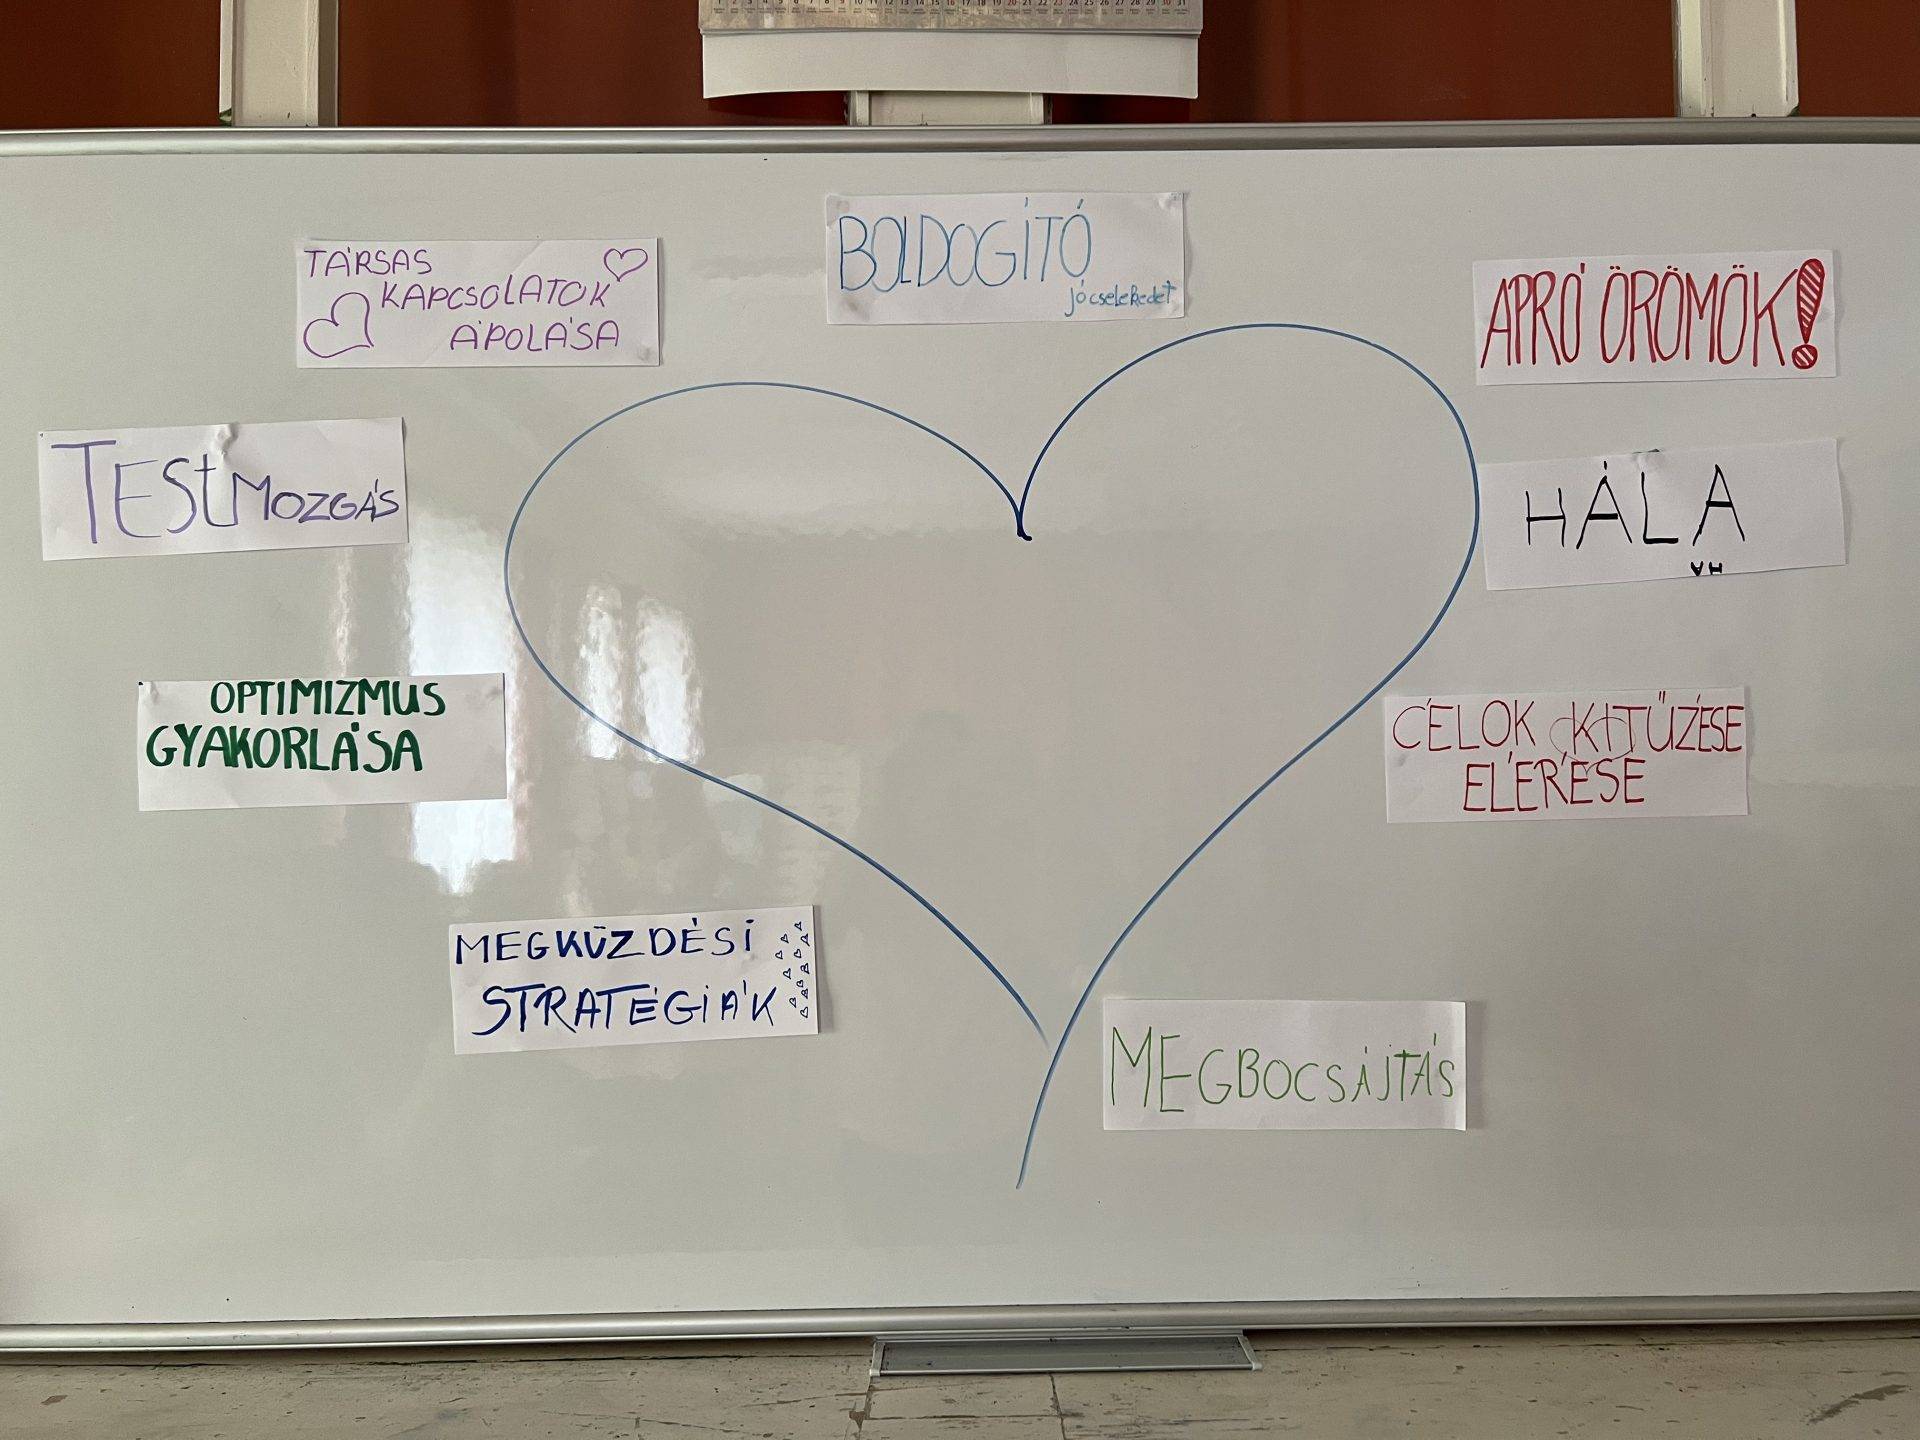 TÁRSAS
KAPCSOLATOK
ÁPOLÁSA
BOLDOGÍTÓ
jócselekedet
APRÓ ÖRÖMÖK!
TESTMOZGÁS
HÁLA
OPTIMIZMUS
GYAKORLÁSA
CÉLOK KITŰZÉSE
ELÉRÉSE
MEGKÜZDÉSI
STRATÉGIÁK
MEGBOCSÁJTÁS